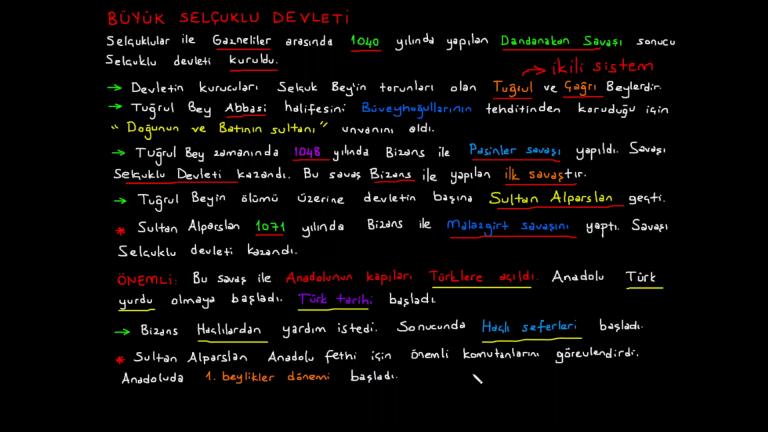 BÜYÜK SELÇUKLU DEVLETİ
Selçuklular ile Gazneliler arasında 1040 yılında yapılan Dandanakan Savaşı sonucu
Selçuklu devleti kuruldu.
→ ikili sistem
→ Devletin kurucuları Selçuk Bey'in torunları olan Tuğrul ve Çağrı Beylerdir.
→ Tuğrul Bey Abbasi halifesini Büveyhoğullarının tehditinden koruduğu için
"Doğunun ve Batının sultanı" unvanını aldı.
→ Tuğrul Bey zamanında 1048 yılında Bizans ile Pasinler savaşı yapıldı. Savaşı
Selçuklu Devleti kazandı. Bu savaş Bizans ile yapılan ilk savaştır.
→ Tuğrul Beyin ölümü üzerine devletin başına Sultan Alparslan geçti.
* Sultan Alparslan 1071 yılında Bizans ile Malazgirt savaşını yaptı. Savaşı
Selçuklu devleti kazandı.
ÖNEMLİ: Bu savaş ile Anadolunun kapıları Türklere açıldı. Anadolu Türk
yurdu olmaya başladı. Türk tarihi başladı.
→ Bizans Haçlılardan yardım istedi. Sonucunda Haçlı seferleri başladı.
* Sultan Alparslan Anadolu fethi için önemli komutanlarını görevlendirdi.
Anadoluda 1. beylikler dönemi başladı.